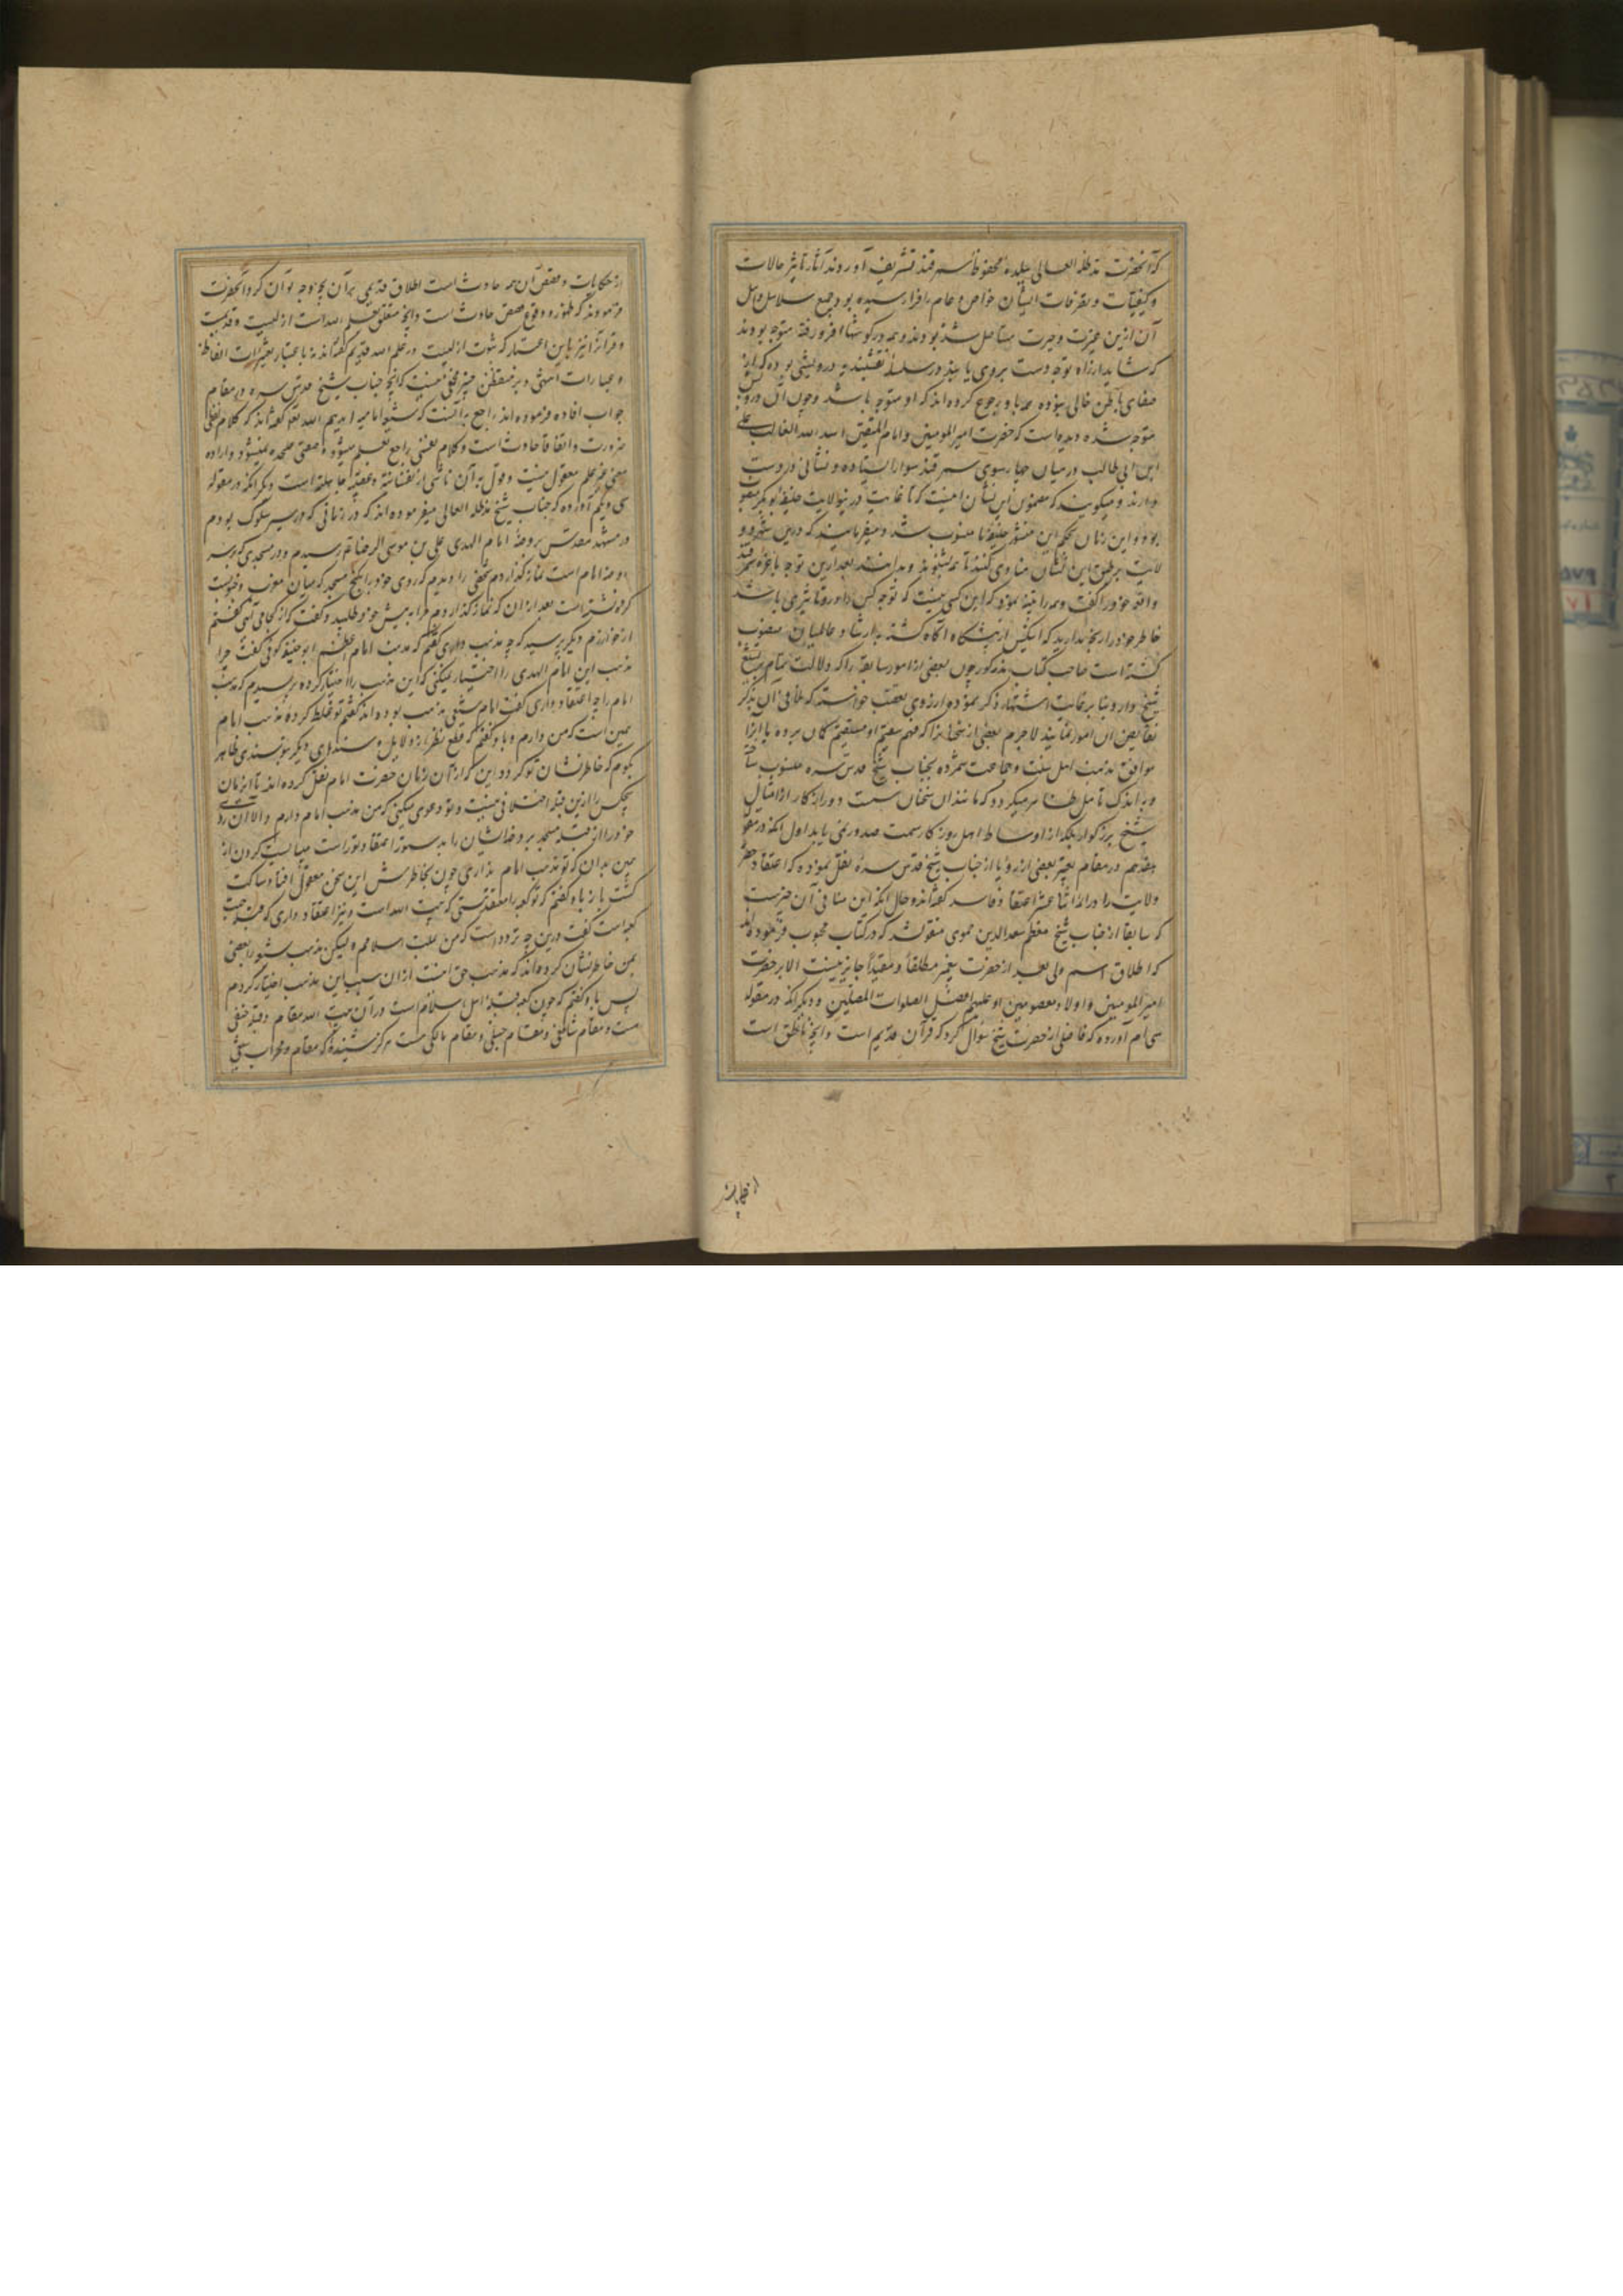 که آنحضرت مدظله العالی ببلده محفوظه سمرقند تشریف آوردند آثار تاثیر حالات
و کیفیات و تصرفات ایشان خواص و عام را فرا رسیده بود جمیع سلاسل و اهل
آن ازین غیرت و حیرت مستاصل شده بودند و همه در گوشها فرو رفته متوجه بودند
که شاید از راه توجه دست بر وی یابند در سلسله نقشبندیه درویشی بوده که از
صفای باطن خالی نبوده همه باو رجوع کرده اند که او متوجه باشد و چون آن درویش
متوجه شده دیده است که حضرت امیرالمومنین و امام المتقین اسد الله الغالب علی
ابن ابی طالب در میان چهار سوی سمرقند سوار ایستاده و نشانی در دست
دارند و میگویند که مضمون این نشان اینست که تا غایت درین ولایت خلیفه ابوبکر منصوب
بود و این زمان بحکم این منشور خلیفه ما منصوب شد و میفرمایند که درین شهر و
لایت بر طبق این نشان منادی کنند تا همه بشنوند و بدانند بعد ازین توجه باخر
واقعه خود را گفت و همه را تنبیه نمود که این کسی نیست که توجه کس را در و تاثیری باشد
خاطر خود را رنجه مدارید که اینکس از پیشگاه آگاه گشته بارشاد عالمیان منصوب
گشته است صاحب کتاب مذکور چون بعضی از امور سابقه را که دلالت تمام بر تشیع
شیخ دارد بنا بر غایت اشتهار ذکر نموده و از روی تعصب خواسته که تلافی آن بذکر
نقایض آن امور نماید لاجرم بعضی از سخنانرا که فهم سقیم او مستقیم گمان برده یا آنرا
موافق مذهب اهل سنت و جماعت شمرده بجناب شیخ قدس سره منسوب ساخته
و به اندک تامل ظاهر میگردد که مانند آن سخنان سست و دور از کار از امثال
شیخ بزرگوار بلکه از اوساط اهل روزگار سمت صدور نمی یابد اول آنکه در مقوله
هفدهم در مقام تعبیر بعضی از رویا از جناب شیخ قدس سره نقل نموده که اعتقاد حصر
ولایت را در ائمه اثنا عشر اعتقاد فاسد گفته اند و حال آنکه این منافی آن چیزیست
که سابقا از جناب شیخ معظم سعدالدین حموی منقول شد که در کتاب محبوب فرموده اند
که اطلاق اسم ولی بعد از حضرت پیغمبر مطلقاً و مقیداً جایز نیست الا بر حضرت
امیرالمومنین و اولاد معصومین او علیهم افضل الصلوات المصلین و دیگر آنکه در مقوله
سی ام آورده که فاضلی از حضرت شیخ سوال کرد که قرآن قدیم است و آنچه ناطق است
از حکایات
از حکایات و قصص آن همه حادث است اطلاق قدیمی بر آن بچه وجه توان کرد آنحضرت
فرمودند که ظهور و وقوع قصص حادث است و آنچه متعلق بعلم الله است ازلیست و قدیمست
و قرآنرا نیز باین اعتبار که ثبوت ازلیست در علم الله قدیم گفته اند نه باعتبار تغییرات الفاظ
و عبارات انتهی و بر متفطن خبیر مخفی نیست که آنچه جناب شیخ قدس سره در مقام
جواب افاده فرموده اند راجع به آنست که شیعه امامیه ایدهم الله تعالی گفته اند که کلام لفظی
ضرورت و اتفاقا حادث است و کلام نفسی راجع بعلم میشود و معنی علیحده نمیشود و اراده
معنی غیر علم معقول نیست و قول به آن ناشی از نفسانیة و عصبیة جاهلیة است و دیگر آنکه در مقوله
سی و یکم آورده که جناب شیخ مدظله العالی میفرموده اند که در زمانی که در سیر سلوک بودم
در مشهد مقدس بروضه امام الهدی علی بن موسی الرضا ع رسیدم و در مسجدی که بر سر
روضه امام است نماز گذاردم شخصی را دیدم که روی خود را بکنج مسجد که میان مغرب و جنوبست
کرده نشسته است بعد از آن که نماز گذاردم مرا به پیش خود طلبید و گفت که از کجا می آئی گفتم
از خوارزم دیگر پرسید که چه مذهب داری گفتم که مذهب امام اعظم ابوحنیفه کوفی گفت چرا
مذهب این امام الهدی را اختیار نمیکنی که این مذهب را اختیار کرده پرسیدم که مذهب
امام را چه اعتقاد داری گفت امام شیعی مذهب بوده اند گفتم تو غلط کرده مذهب امام
همین است که من دارم و باو گفتم که قطع نظر از دلایل و سندهای دیگر بتو سندی ظاهر
بگویم که خاطر نشان تو گردد این که از آن زمان حضرت امام نقل کرده اند تا این زمان
هیچکس را ازین قبله اختلافی نیست و تو دعوی میکنی که من مذهب امام دارم و الا آن روی
خود را از قبله مسجد بر روضه ایشان را بد ستور اعتقاد تو راست میبایست کردن از
همین بدان که تو مذهب امام نداری چون بخاطرش این سخن معقول افتاد ساکت
گشت باز باو گفتم که تو کعبه را معتقد هستی که بیت الله است و نیز اعتقاد داری که قبله
کعبه است گفت درین چه تردد است که من ملت اسلامم و لیکن مذهب شیعه را بعضی
بمن خاطر نشان کرده اند که مذهب حق است از آن سبب این مذهب اختیار کردم
پس باو گفتم که چون کعبه قبله اهل اسلام است و در آن بیت الله مقام و قبله حنفی
هست و مقام شافعی و مقام حنبلی و مقام مالکی هست هرگز شنیده که مقام و محراب شیعی